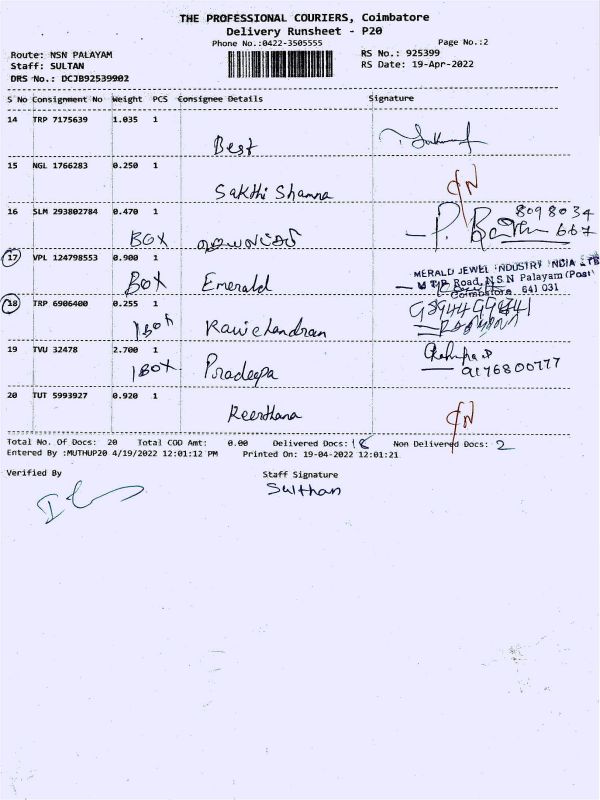 THE PROFESSIONAL COURIERS, Coimbatore
Delivery Runsheet - P20
Phone No.:0422-3505555
Page No.:2
Route: NSN PALAYAM
RS No.: 925399
Staff: SULTAN
RS Date: 19-Apr-2022
DRS No.: DCJB92539902
S No Consignment No Weight PCS Consignee Details Signature
14 TRP 7175639 1.035 1
Best
15 NGL 1766283 0.250 1
Sakthi Sharma
16 SLM 293802784 0.470 1
BOX
8098034
667
17 VPL 124798553 0.900 1
BOX Emerald
MERALD JEWEL INDUSTRY INDIA LTD
MTP Road, N.S.N Palayam (Post)
Coimbatore. 641 031
18 TRP 6906400 0.255 1
1 BOX Ravichandran
19 TVU 32478 2.700 1
1 BOX Pradeepa
9176800777
20 TUT 5993927 0.920 1
Keerthana
Total No. Of Docs: 20 Total COD Amt: 0.00 Delivered Docs: 18 Non Delivered Docs: 2
Entered By :MUTHUP20 4/19/2022 12:01:12 PM Printed On: 19-04-2022 12:01:21
Verified By
Staff Signature
Sulthan